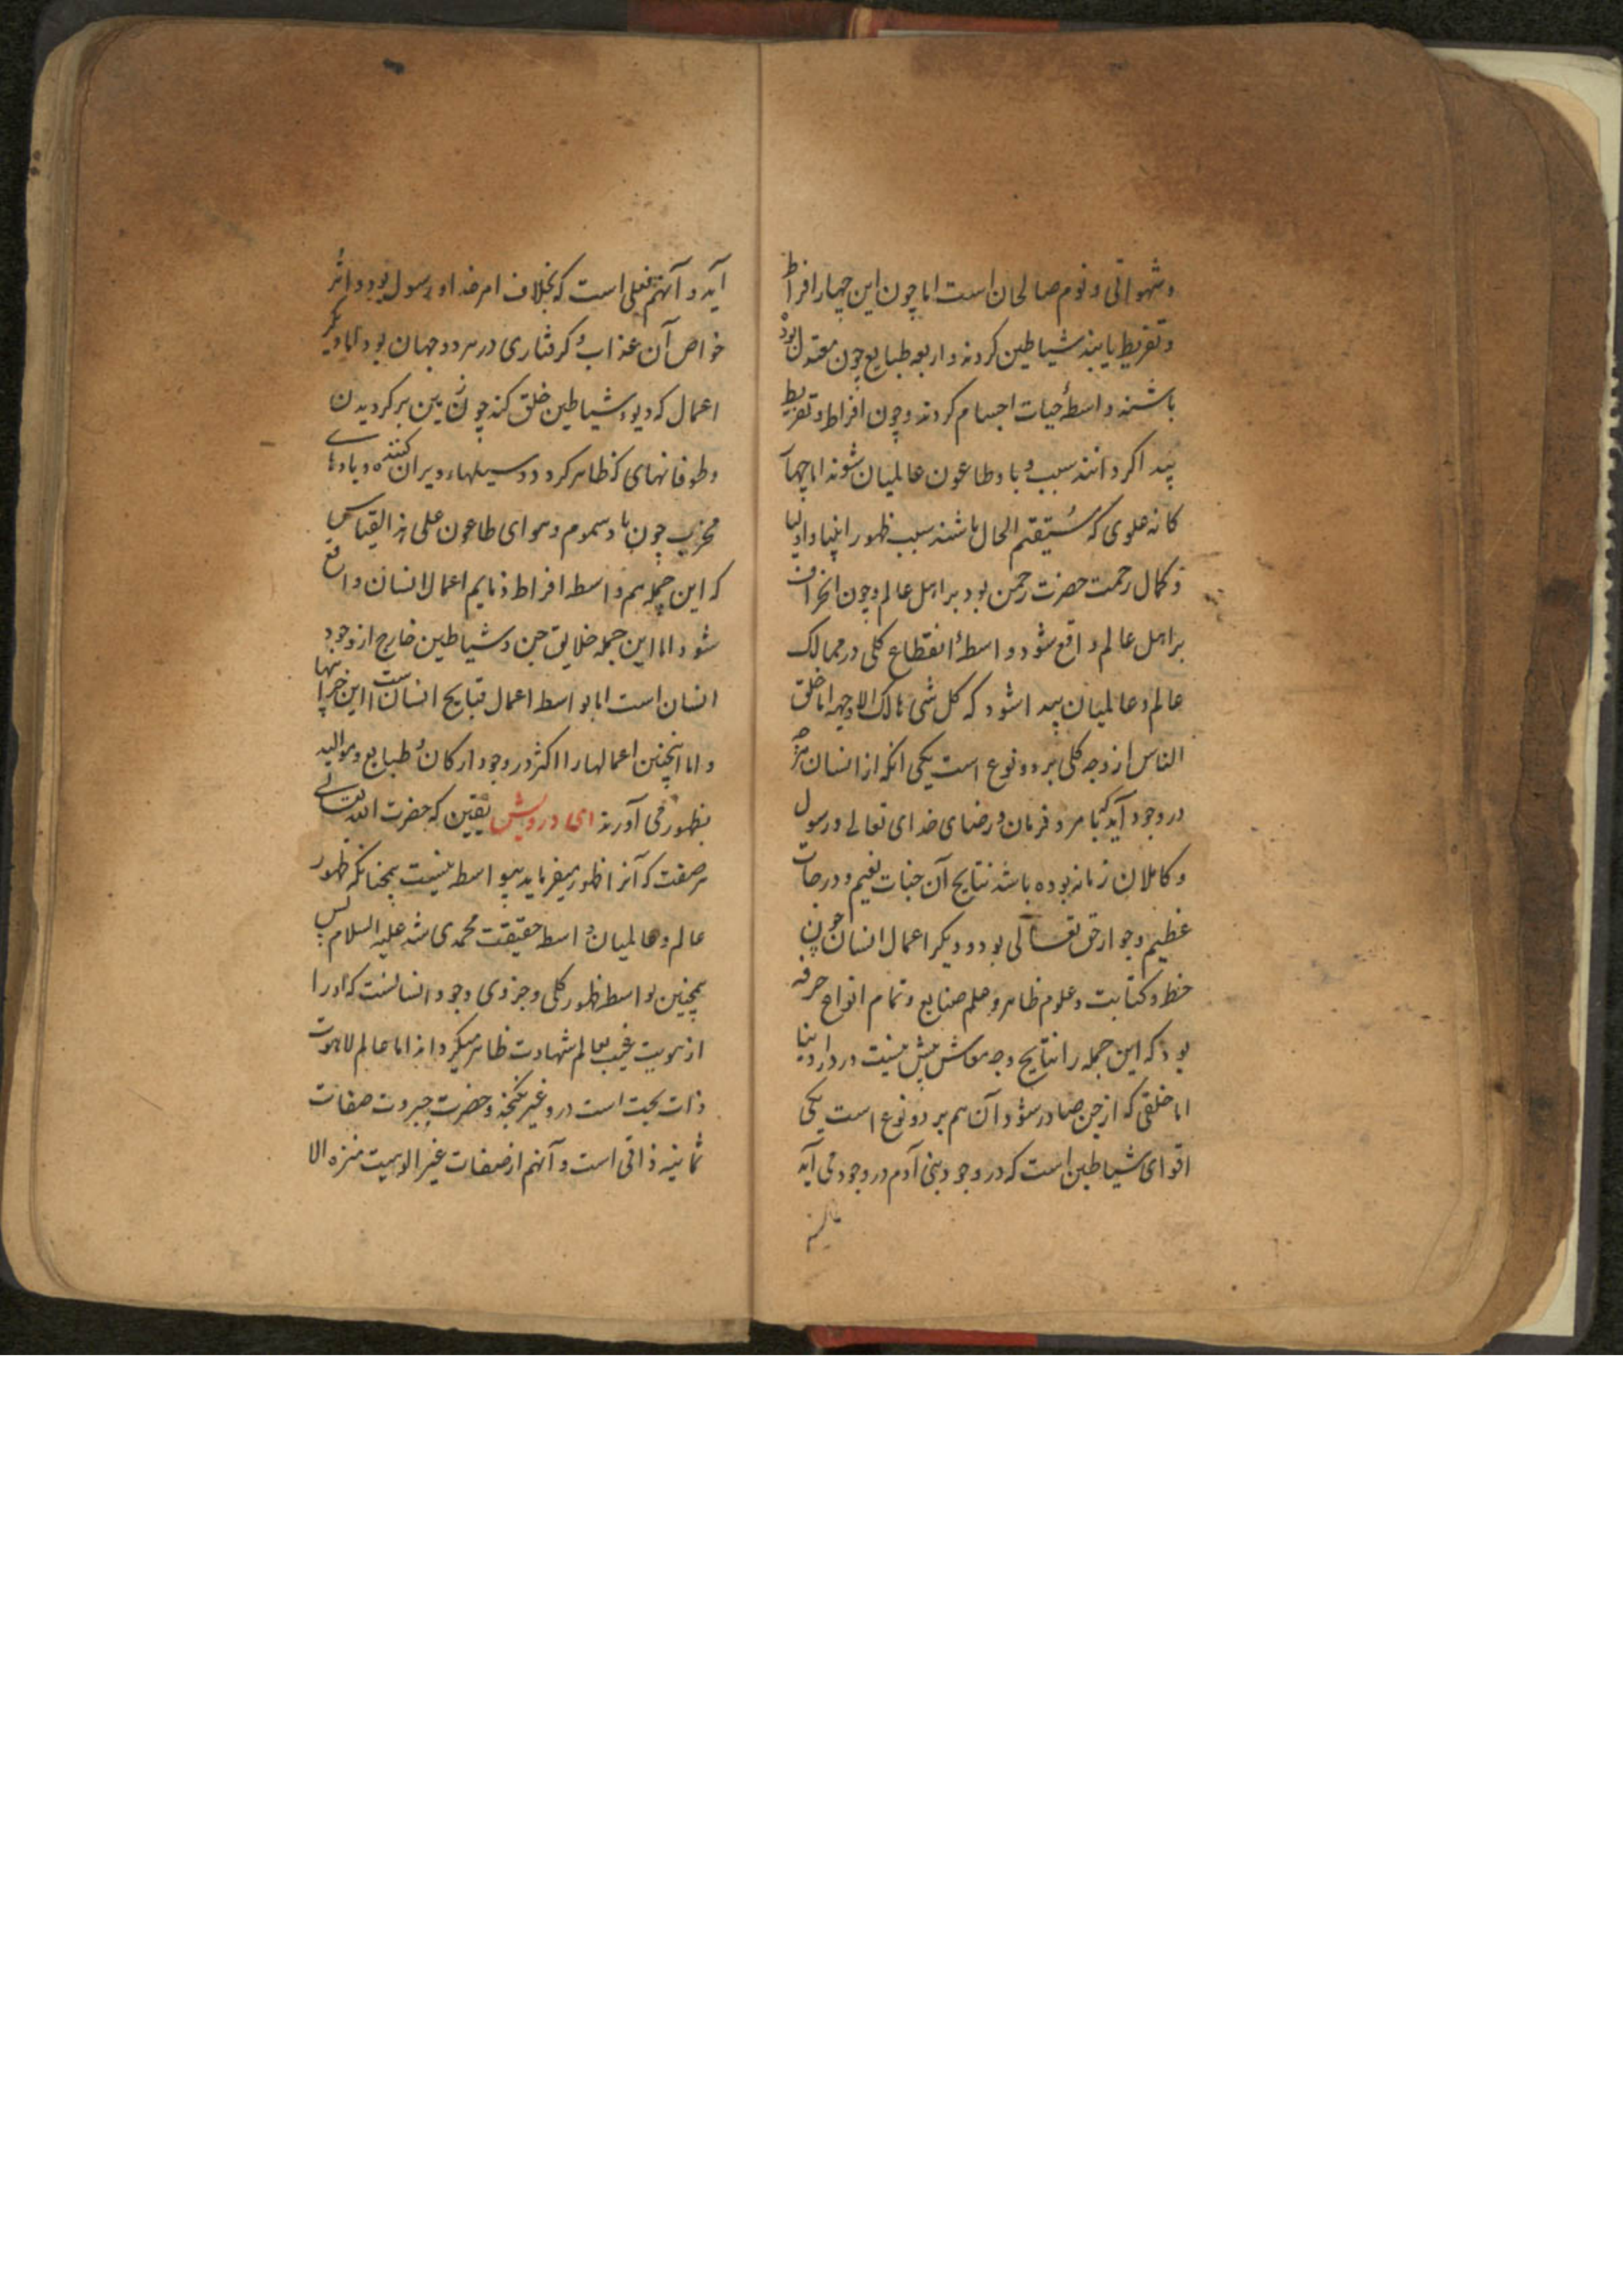 و شهواتی و نوم صالحان است اما چون این چهار افراط
و تفریط یابند شیاطین کردند و اربعه طبایع چون معتدل بود
باشند واسطهٔ حیات اجسام کردند و چون افراط و تفریط
پیدا کردانند سبب وبا و طاعون عالمیان شوند اما چهار
کانه علوی که مستقیم الحال باشند سبب ظهور انبیا و اولیا
و کمال رحمت حضرت رحمن بود بر اهل عالم و چون انحراف
بر اهل عالم واقع شود واسطهٔ انقطاع کلی در ممالک
عالم و عالمیان پیدا شود که کل شی هالک الا وجهه اما خلق
الناس از وجه کلی بر دو نوع است یکی انکه از انسان
در وجود آید که بامر و فرمان و رضای خدای تعالی و رسول
و کاملان زمانه بوده باشد نتایج آن جنات نعیم و درجات
عظیم و جوار حق تعالی بود و دیکر اعمال انسان چون
خط و کتابت و علوم ظاهر و علم صنایع و تمام انواع حرفه
بود که این جمله را نتایج وجه معاش بیش نیست در دار دنیا
اما خلقی که از جن صادر شود آن هم بر دو نوع است یکی
اقوای شیاطین است که در وجود بنی آدم در وجود می آید
آید و آنهم فعلی است که بخلاف امر خدا و رسول بود و اثر
خواص آن عذاب و کرفتاری در هر دو جهان بود اما دیکر
اعمال که دیو و شیاطین خلق کند چون زمین برکردیدن
و طوفانهای که ظاهر کردد و سیلهاء ویران کننده و بادهای
مخرب چون باد سموم و هوای طاعون علی هذا القیاس
که این جمله هم واسطه افراط ذمایم اعمال انسان واقع
شود اما این جمله خلایق جن و شیاطین خارج از وجود
انسان است اما بواسطه اعمال قبایح انسان است این خرابیها
و اما اینچنین اعمالها را اکثر در وجود ارکان و طبایع و موالید
بظهور می آورند ای درویش یقین که حضرت الله تعالی
هر صفت که آنرا ظهور میفرماید بیواسطه نیست همچنانکه ظهور
عالم و عالمیان واسطه حقیقت محمدی شد علیه السلام پس
همچنین بواسطه ظهور کلی و جزوی وجود انسانست که او را
از هویت غیب بعالم شهادت ظاهر میکرداند اما عالم لاهوت
ذات بحت است درو غیر نکنجد و حضرت جبروت صفات
ثمانیه ذاتی است و آنهم از صفات غیر الوهیت منزه الا